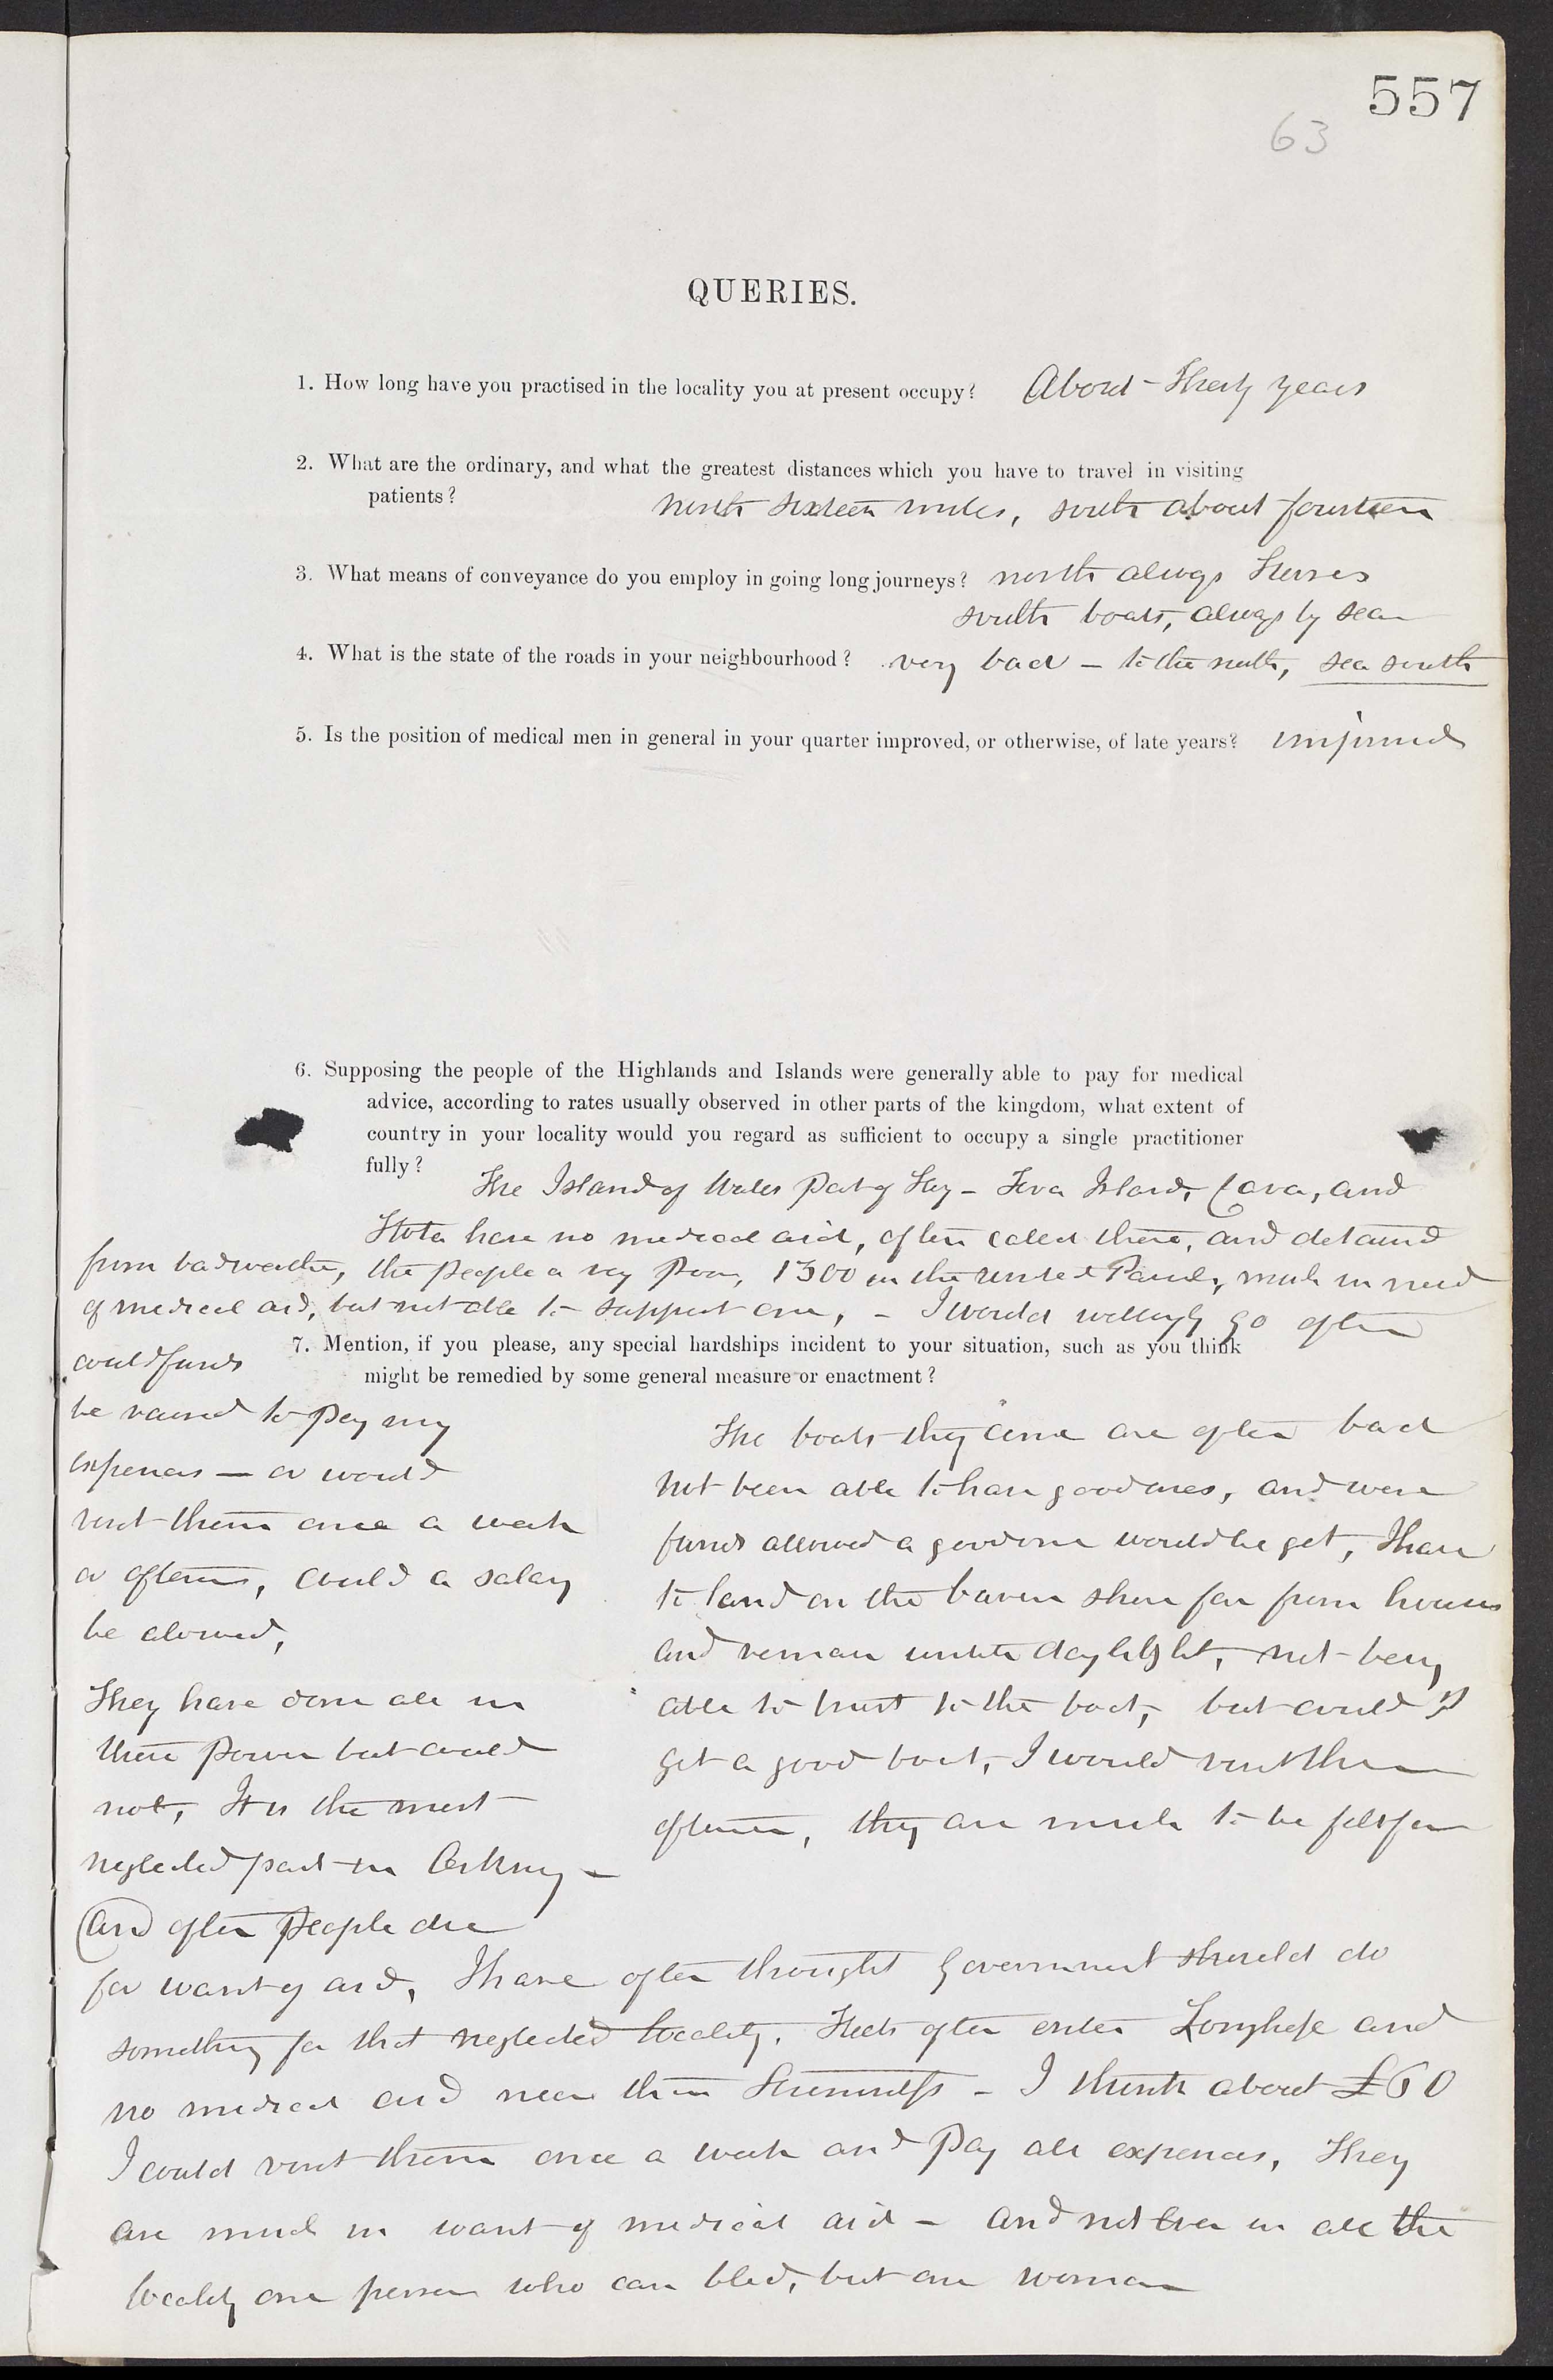 557
63
QUERIES.
1. How long have you practised in the locality you at present occupy? About - Therty years
2. What are the ordinary, and what the greatest distances which you have to travel in visiting
patients?
north sixteen miles, south about fourteen
3. What means of conveyance do you employ in going long journeys? north always Horses
south boats, always by sea
4. What is the state of the roads in your neighbourhood? very bad - to the north, sea south
5. Is the position of medical men in general in your quarter improved, or otherwise, of late years?
6. Supposing the people of the Highlands and Islands were generally able to pay for medical
advice, according to rates usually observed in other parts of the kingdom, what extent of
country in your locality would you regard as sufficient to occupy a single practitioner
fully?
The Island of Walls Part of Hoy - Fara Island, Cava, and
Flota have no medical aid, often called there, and detained
from bad weather, the people a very poor, 1300 in the united Parish, much in need
of medical aid, but not able to support one, - I would willingly go often
could funds
be raised to pay my
expences - or would
visit them once a week
or oftener, could a salary
be alowed,
They have done all in
there power but could
not, It is the most
neglected part in Orkney -
And often people die
for want of aid, I have often thought Government should do
something for that neglected locality. Fleets often enter Longhope and
no medical aid near them - I think about £60
I could visit them once a week and pay all expences, They
are much in want of medical aid - and not even in all the
locality one person who can bled, but one woman
7. Mention, if you please, any special hardships incident to your situation, such as you think
might be remedied by some general measure or enactment?
The boats they are often bad
not been able to have good ones, and were
funds allowed a good one would be get, I have
to land on the barren shore far from houses
and remain untill daylight, not being
able to trust to the boat, but could I
get a good boat, I would visit them
oftener, they are much to be felt for